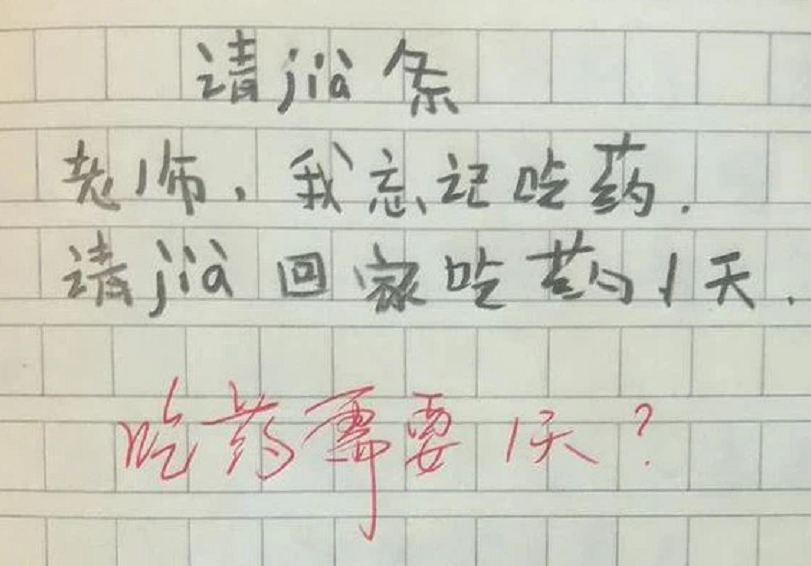 请jià条
老师,我忘记吃药.
请jià回家吃药1天.
吃药需要1天?